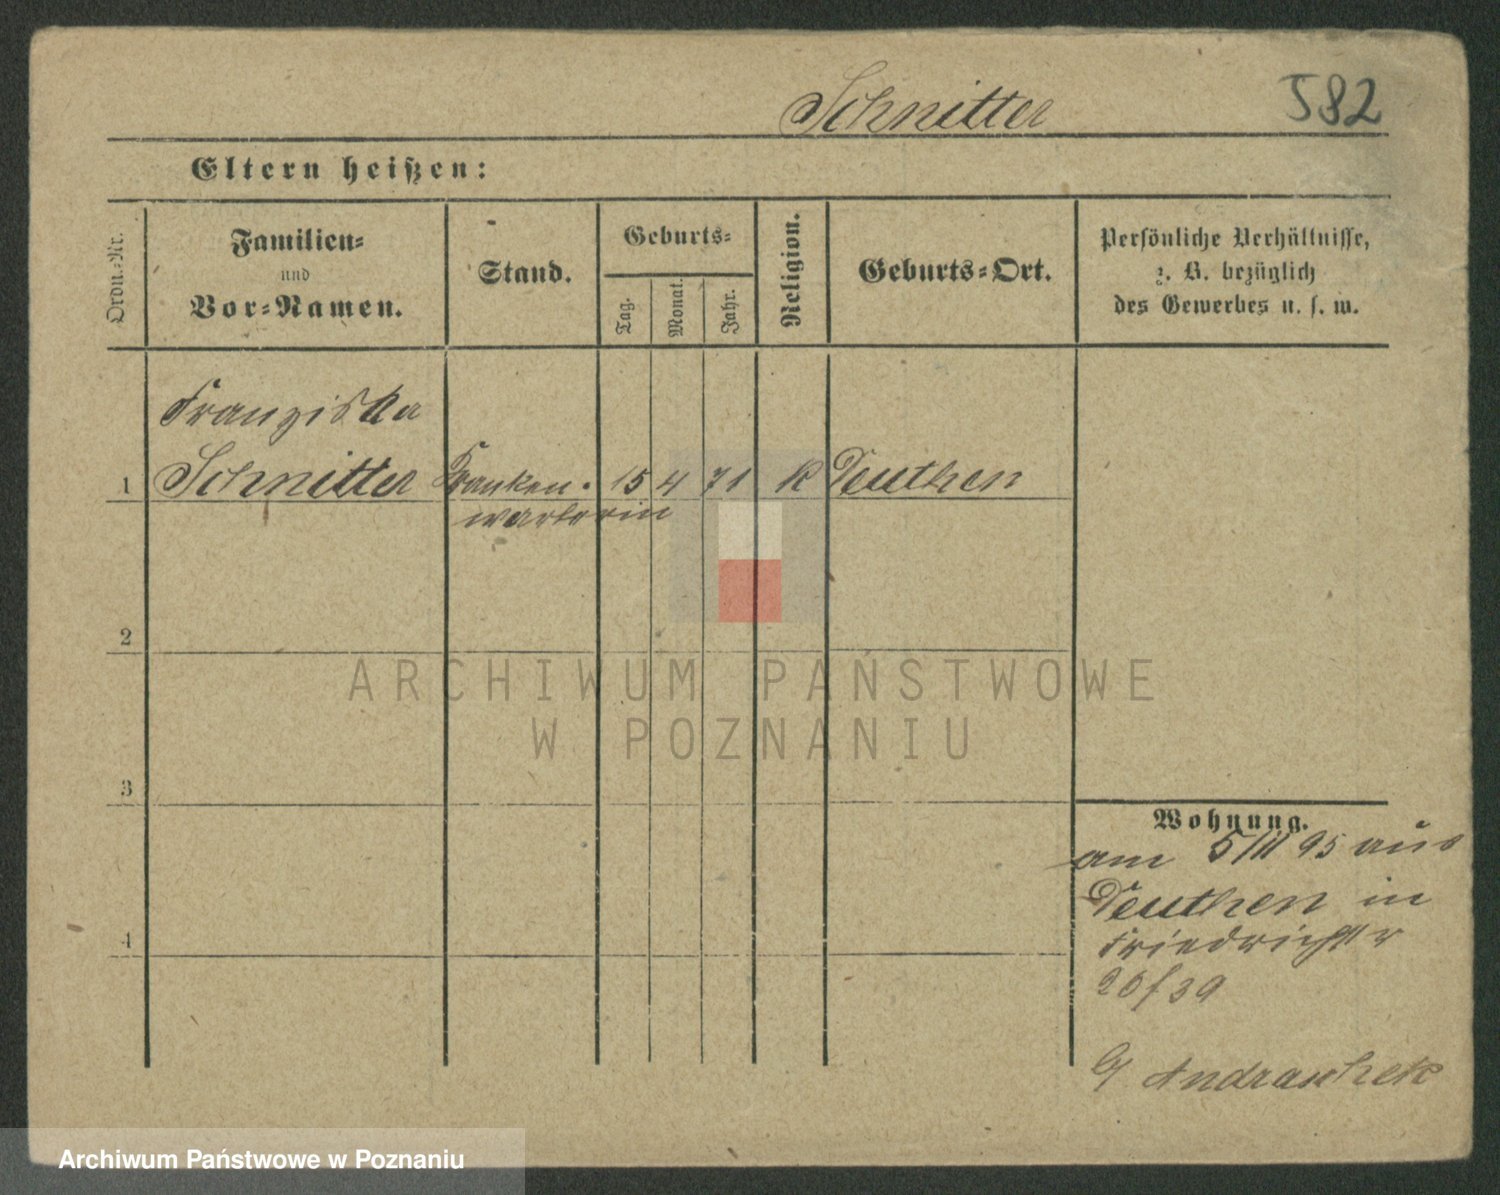 Schnitter 582
Eltern heißen:
Ordn.-Nr.
Familien-
und
Vor-Namen.
Stand.
Geburts-
Tag.
Monat.
Jahr.
Religion.
Geburts-Ort.
Persönliche Verhältnisse,
z. B. bezüglich
des Gewerbes u. s. w.
Franziska
1 Schnitter Kranken- 15 4 71 K Beuthen
warterin
2
3
4
Wohnung.
am 5/III 95 aus
Beuthen in
Friedrichstr
26/39
Andraschek
ARCHIWUM PAŃSTWOWE
W POZNANIU
Archiwum Państwowe w Poznaniu